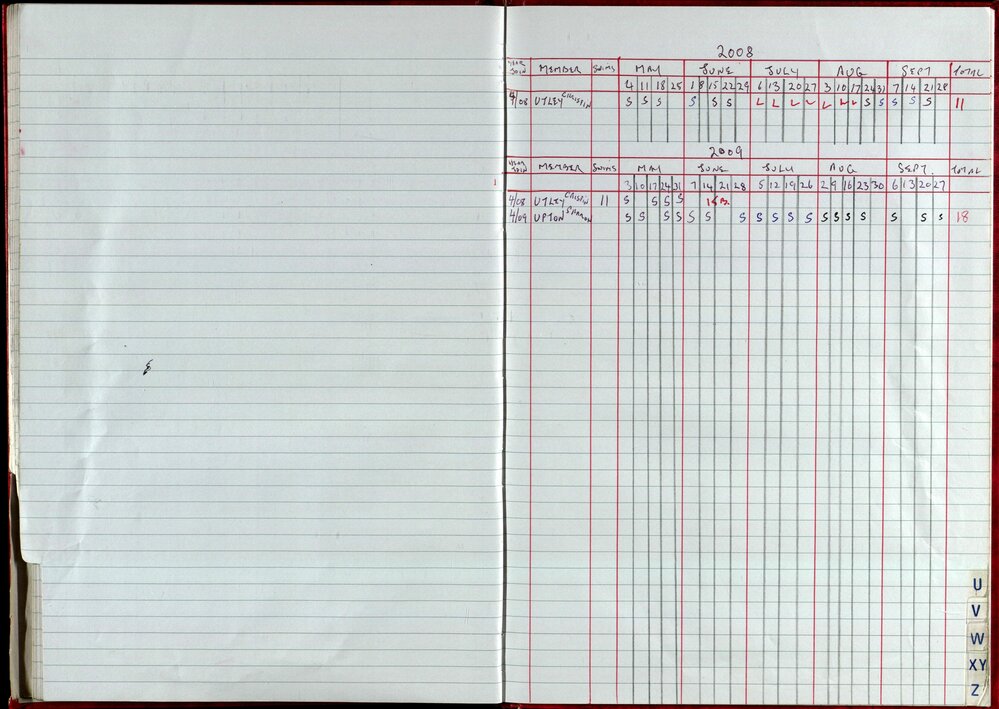 2008
YEAR JOIN MEMBER SWIMS MAY JUNE JULY AUG SEPT TOTAL
4 11 18 25 1 8 15 22 29 6 13 20 27 3 10 17 24 31 7 14 21 28
4/08 UTLEY CRISPIN S S S S S S L L L L L L L S S S S S 11
2009
YEAR JOIN MEMBER SWIMS MAY JUNE JULY AUG SEPT. TOTAL
3 10 17 24 31 7 14 21 28 5 12 19 26 2 9 16 23 30 6 13 20 27
4/08 UTLEY CRISPIN 11 S S S S
4/09 UPTON SHARON S S S S S S S S S S S S S S S S S S 18
U
V
W
XY
Z